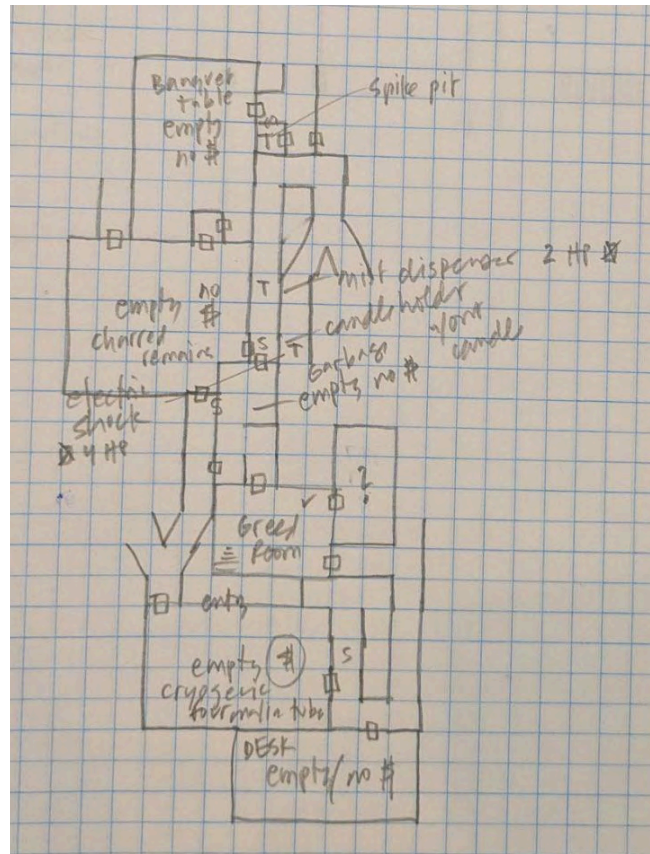 Banquet
table
empty
no $
Spike pit
T
T
mist dispenser 2 HP
no
empty $
charred
remains
candleholder
w/out
candle
S
T
Garbage
empty no $
electric
shock
4 HP
S
?
Greed
Room
T
entry
empty $
cryogenic
tube
S
DESK
empty/no $